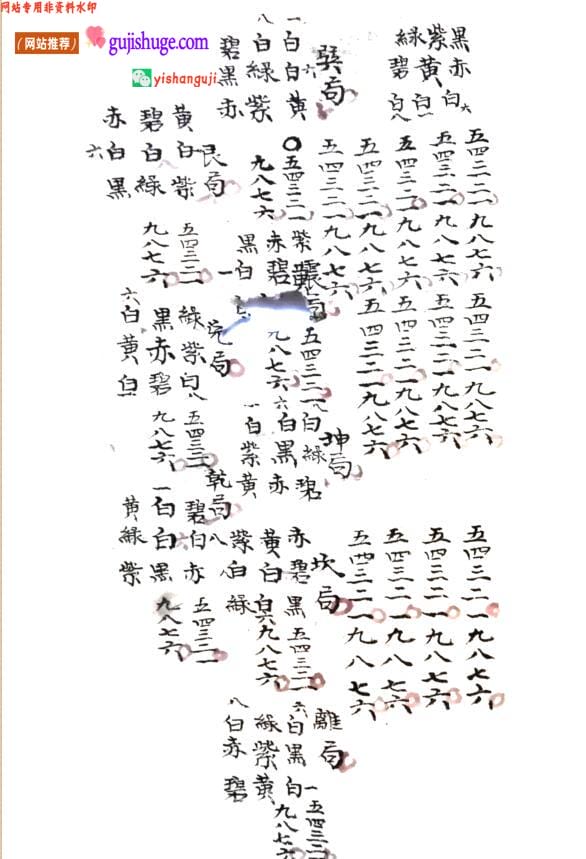 网站专用非资料水印
（网站推荐）
gujishuge.com
yishanguji
黑赤白六
紫黄白一
綠碧白八
巽局
一白白六黄
八白綠紫
碧黑赤
五四三二一九八七六五四三二一九八七六
五四三二一九八七六五四三二一九八七六
五四三二一九八七六五四三二一九八七六
五四三二一九八七六五四三二一九八七六
五四三二一九八七六五四三二一九八七六
五四三二一
九八七六
艮局
黄白紫
碧白綠
赤白黑
六
五四三二一
九八七六
震局
紫黄
赤碧
黑白
一
五四三二一
九八七六
兌局
綠紫白八
黑赤碧
六白黄白
五四三二一
九八七六
坤局
八白綠碧
六白黑赤
一白紫黄
乾局
碧白赤
六
八
一白白黑
黄綠紫
五四三二一
九八七六
坎局
赤碧黑
黄白白六
紫白綠
五四三二一
九八七六
五四三二一九八七六
五四三二一九八七六
五四三二一九八七六
五四三二一九八七六
離局
六白黑白一
綠紫黄
八白赤碧
五四三二一
九八七六